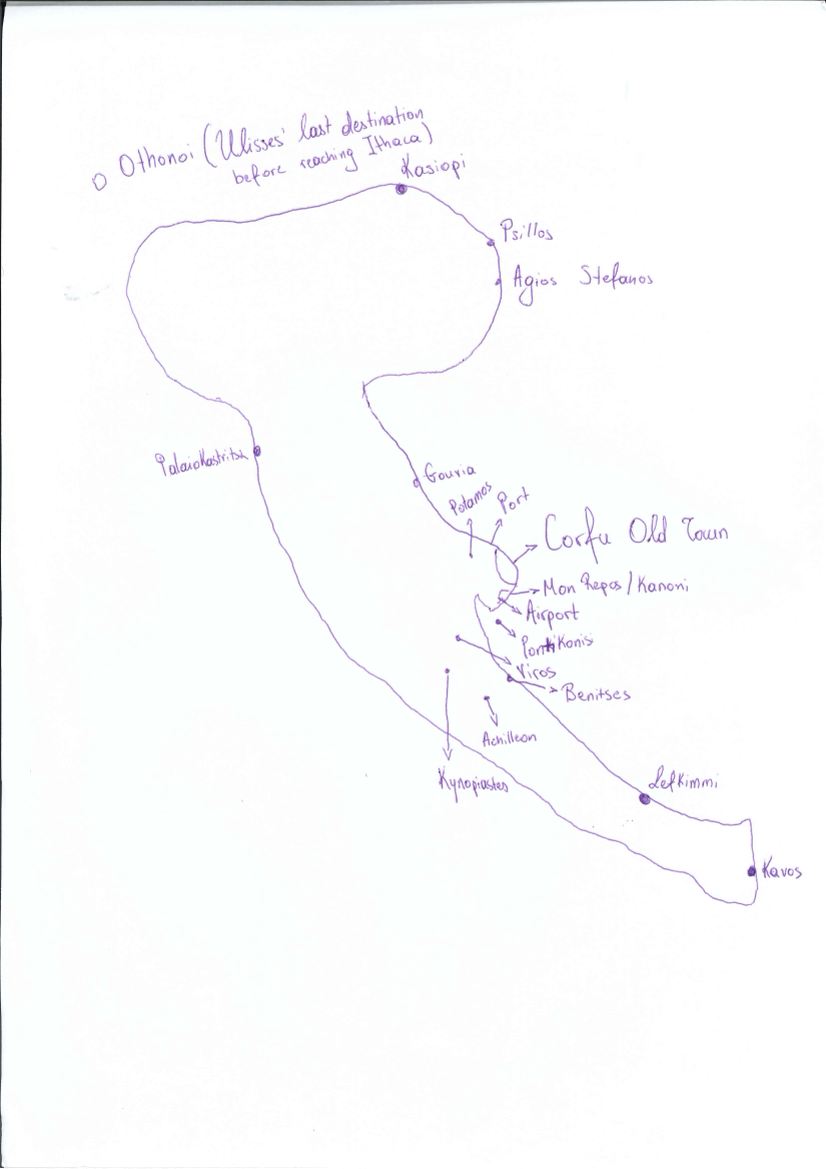 Othonoi (Ulisses' last destination
before reaching Ithaca)
Kasiopi
Psillos
Agios Stefanos
Palaiokastritsa
Gouvia
Potamos
Port
Corfu Old Town
Mon Repos/Kanoni
Airport
Pontikonisi
Viros
Benitses
Achilleon
Kynopiastes
Lefkimmi
Kavos